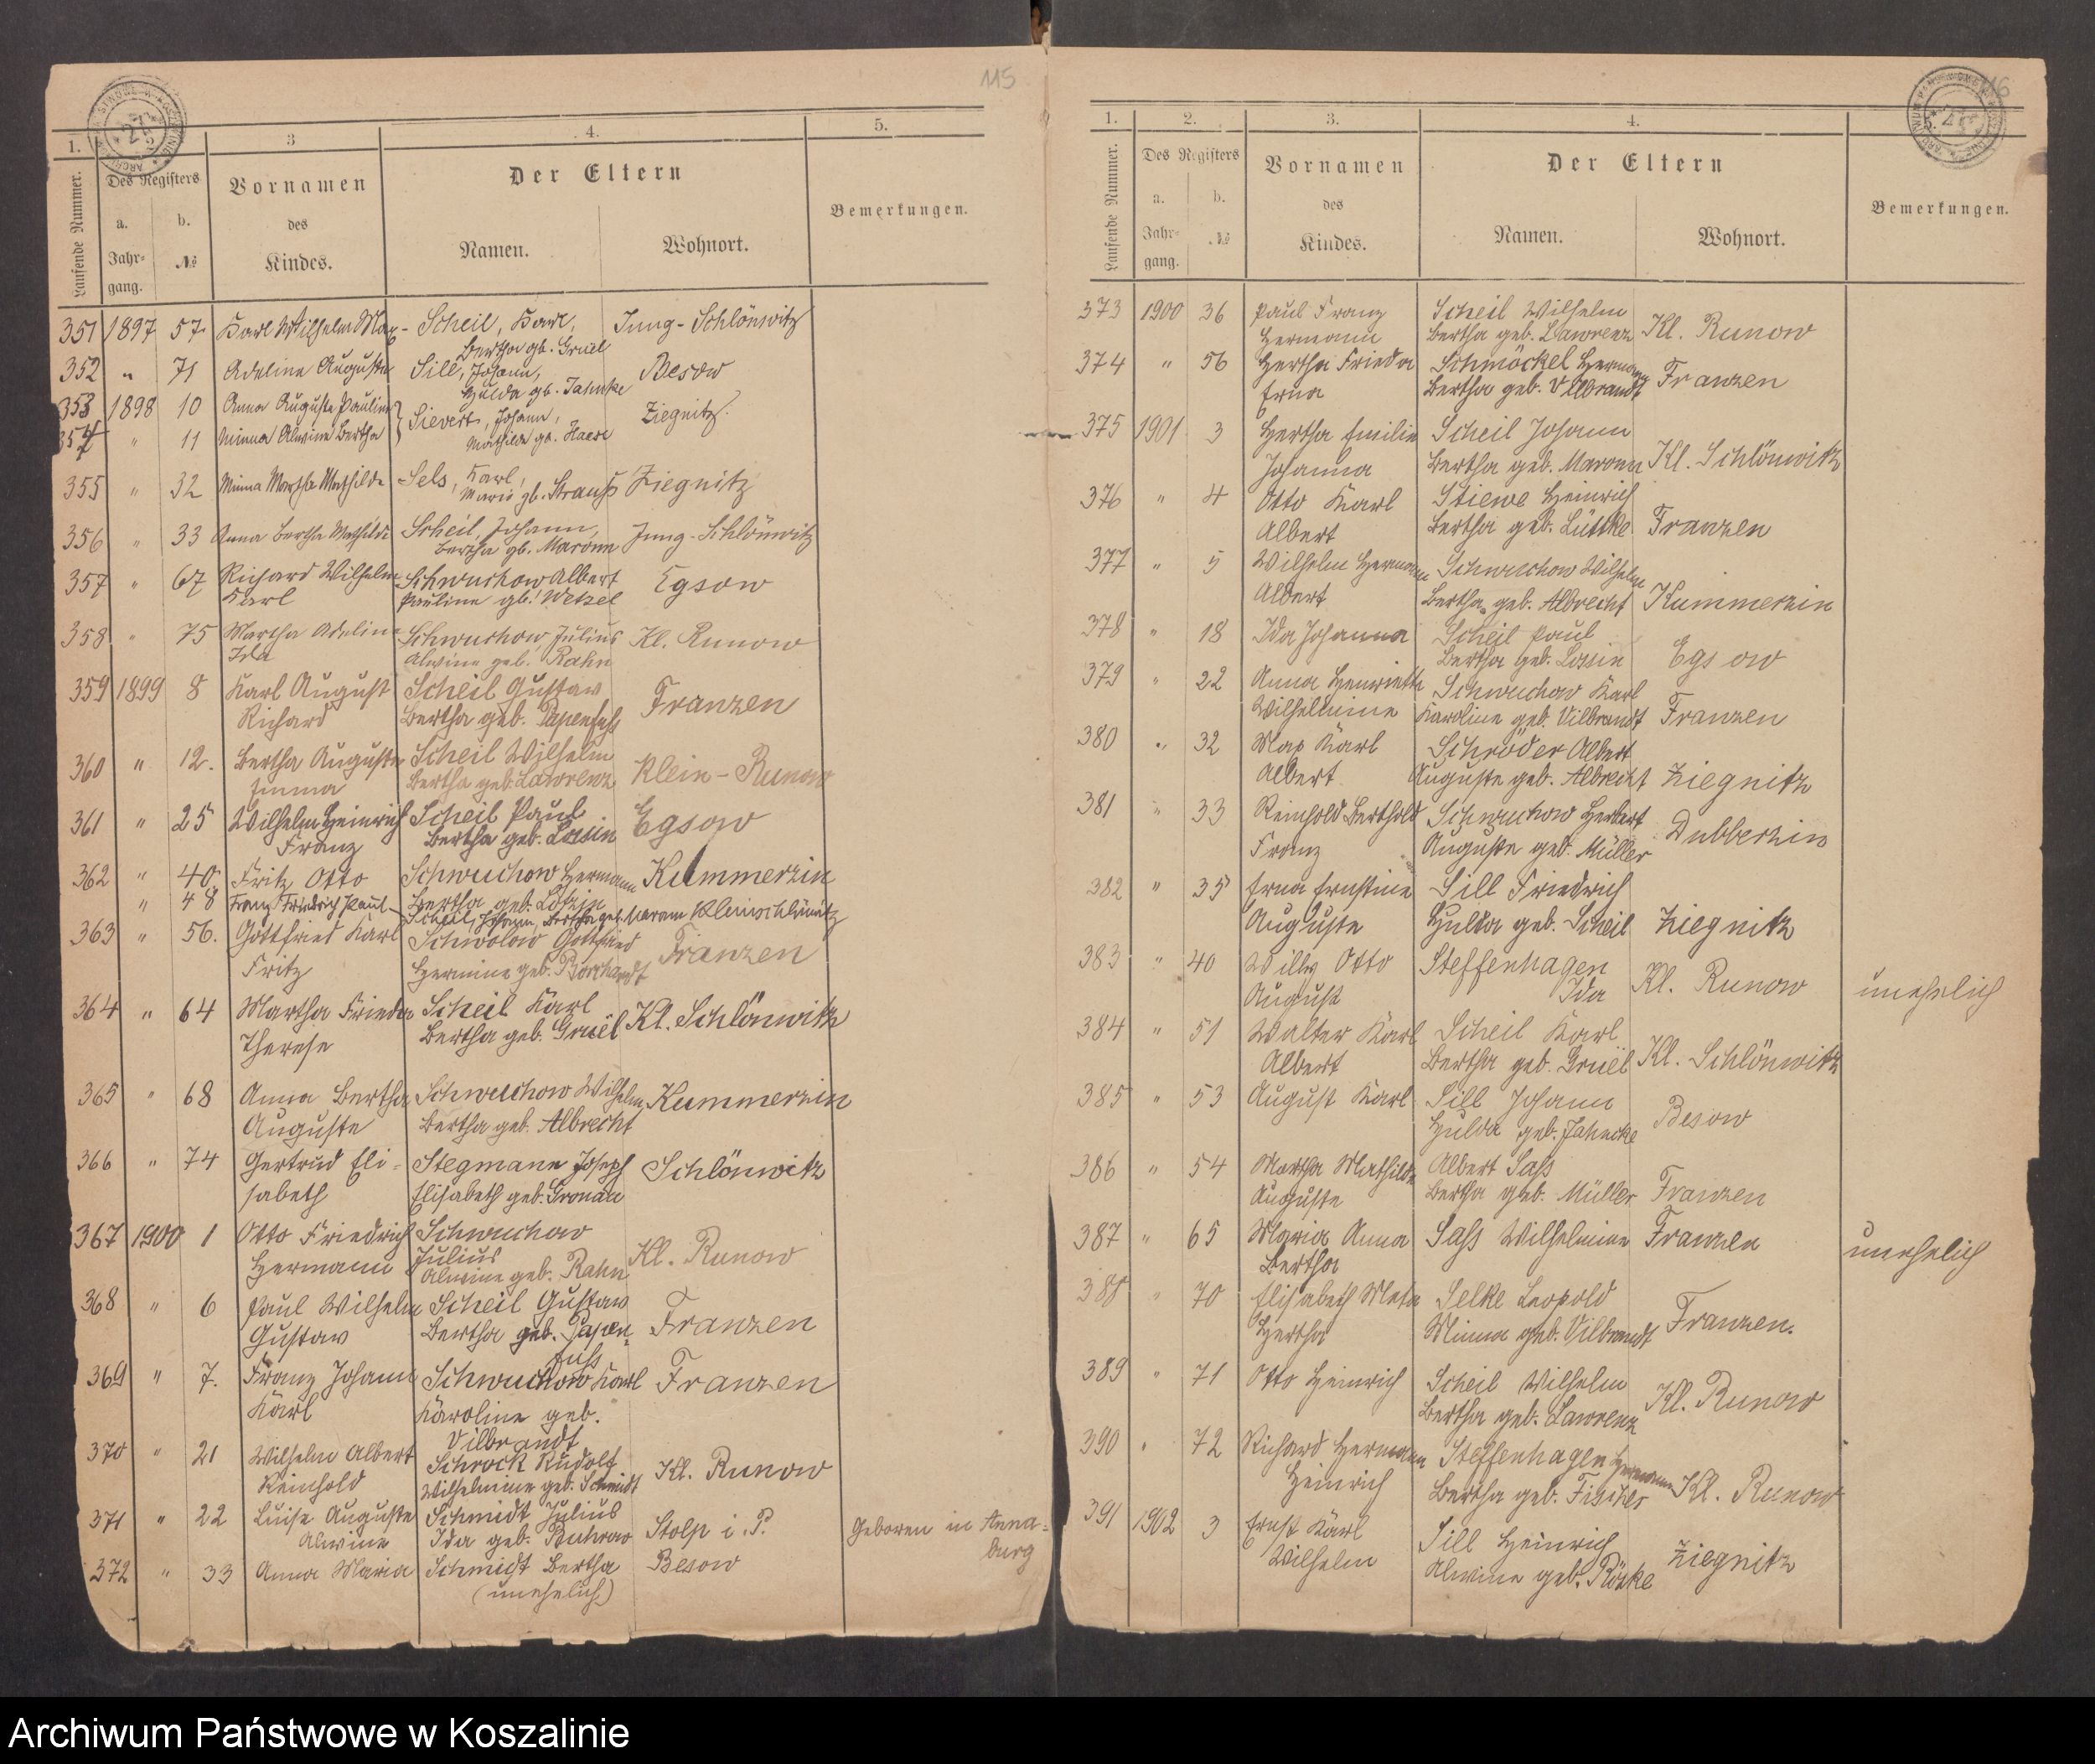 115
1. 3 4. 5.
Laufende Nummer. Des Registers a. Jahr-gang. b. № Vornamen des Kindes. Der Eltern Namen. Wohnort. Bemerkungen.
351 1897 57 Karl Wilhelm Max Scheil, Karl, Jung-Schlönwitz
Bertha gb. Gruel
352 " 71 Adeline Auguste Sill, Johann, Besow
Hulda gb. Jahnke
353 1898 10 Anna Auguste Pauline Sievert, Johann, Ziegnitz
354 " 11 Minna Alwine Bertha Mathilde gb.
355 " 32 Minna Martha Mathilde Sels, Karl, Ziegnitz
Marie gb. Strauß
356 " 33 Anna Bertha Mathilde Scheil, Johann, Jung-Schlönwitz
Bertha gb. Maronn
357 " 67 Richard Wilhelm Schwuchow Albert Egsow
Karl Pauline gb. Wetzel
358 " 75 Martha Adeline Schwuchow, Julius Kl. Runow
Ida Alwine geb. Rahn
359 1899 8 Karl August Scheil Gustav Franzen
Richard Bertha geb. Papenfuß
360 " 12. Bertha Auguste Scheil Wilhelm Klein-Runow
Emma Bertha geb. Lawrenz
361 " 25 Wilhelm Heinrich Scheil Paul Egsow
Franz Bertha geb. Lasin
362 " 40 Fritz Otto Schwuchow Hermann Kummerzin
Bertha geb. Lotzin
" 48 Franz Friedrich Paul Scheil, Johann, Bertha geb. Maronn Kleinschlönwitz
363 " 56. Gottfried Karl Schwolow Gottfried Franzen
Fritz Hermine geb. Borchardt
364 " 64 Martha Frieda Scheil Karl Kl. Schlönwitz
Therese Bertha geb. Gruël
365 " 68 Anna Bertha Schwuchow Wilhelm Kummerzin
Auguste Bertha geb. Albrecht
366 " 74 Gertrud Eli- Stegmann Joseph Schlönwitz
sabeth Elisabeth geb. Gronau
367 1900 1 Otto Friedrich Schwuchow Kl. Runow
Hermann Julius
Alwine geb. Rahn
368 " 6 Paul Wilhelm Scheil Gustav Franzen
Gustav Bertha geb. Papen-
fuß
369 " 7. Franz Johann Schwuchow Karl Franzen
Karl Karoline geb.
Vilbrandt
370 " 21 Wilhelm Albert Schrock Rudolf Kl. Runow
Reinhold Wilhelmine geb. Schmidt
371 " 22 Luise Auguste Schmidt Julius Stolp i. P. Geboren in Anna-
Alwine Ida geb. burg
372 " 33 Anna Maria Schmidt Bertha Besow
(unehelich)
116
1. 2. 3. 4. 5.
Laufende Nummer. Des Registers a. Jahr-gang. b. № Vornamen des Kindes. Der Eltern Namen. Wohnort. Bemerkungen.
373 1900 36 Paul Franz Scheil Wilhelm Kl. Runow
Hermann Bertha geb. Lawrenz
374 " 56 Hertha Frieda Schmöckel Hermann Franzen
Erna Bertha geb. Vilbrandt
375 1901 3 Hertha Emilie Scheil Johann Kl. Schlönwitz
Johanna Bertha geb. Maronn
376 " 4 Otto Karl Stiewe Heinrich Franzen
Albert Bertha geb. Lüttke
377 " 5 Wilhelm Hermann Schwuchow Wilhelm Kummerzin
Albert Bertha geb. Albrecht
378 " 18 Ida Johanna Scheil Paul Egsow
Bertha geb. Lasin
379 " 22 Anna Henriette Schwuchow Karl Franzen
Wilhelmine Karoline geb. Vilbrandt
380 " 32 Max Karl Schröder Albert Ziegnitz
Albert Auguste geb. Albrecht
381 " 33 Reinhold Berthold Schwuchow Herbert Dubberzin
Franz Auguste geb. Müller
382 " 35 Erna Ernstine Sill Friedrich Ziegnitz
Auguste Hulda geb. Scheil
383 " 40 Willy Otto Steffenhagen Kl. Runow unehelich
August Ida
384 " 51 Walter Karl Scheil Karl Kl. Schlönwitz
Albert Bertha geb. Gruël
385 " 53 August Karl Sill Johann Besow
Hulda geb. Jahncke
386 " 54 Martha Mathilde Albert Saß Franzen
Auguste Bertha geb. Müller
387 " 65 Maria Anna Saß Wilhelmine Franzen unehelich
Bertha
388 " 70 Elisabeth Meta Selke Leopold Franzen.
Hertha Minna geb. Vilbrandt
389 " 71 Otto Heinrich Scheil Wilhelm Kl. Runow
Bertha geb. Lawrenz
390 " 72 Richard Hermann Steffenhagen Hermann Kl. Runow
Heinrich Bertha geb. Fischer
391 1902 3 Ernst Karl Sill Heinrich Ziegnitz
Wilhelm Alwine geb.
Archiwum Państwowe w Koszalinie